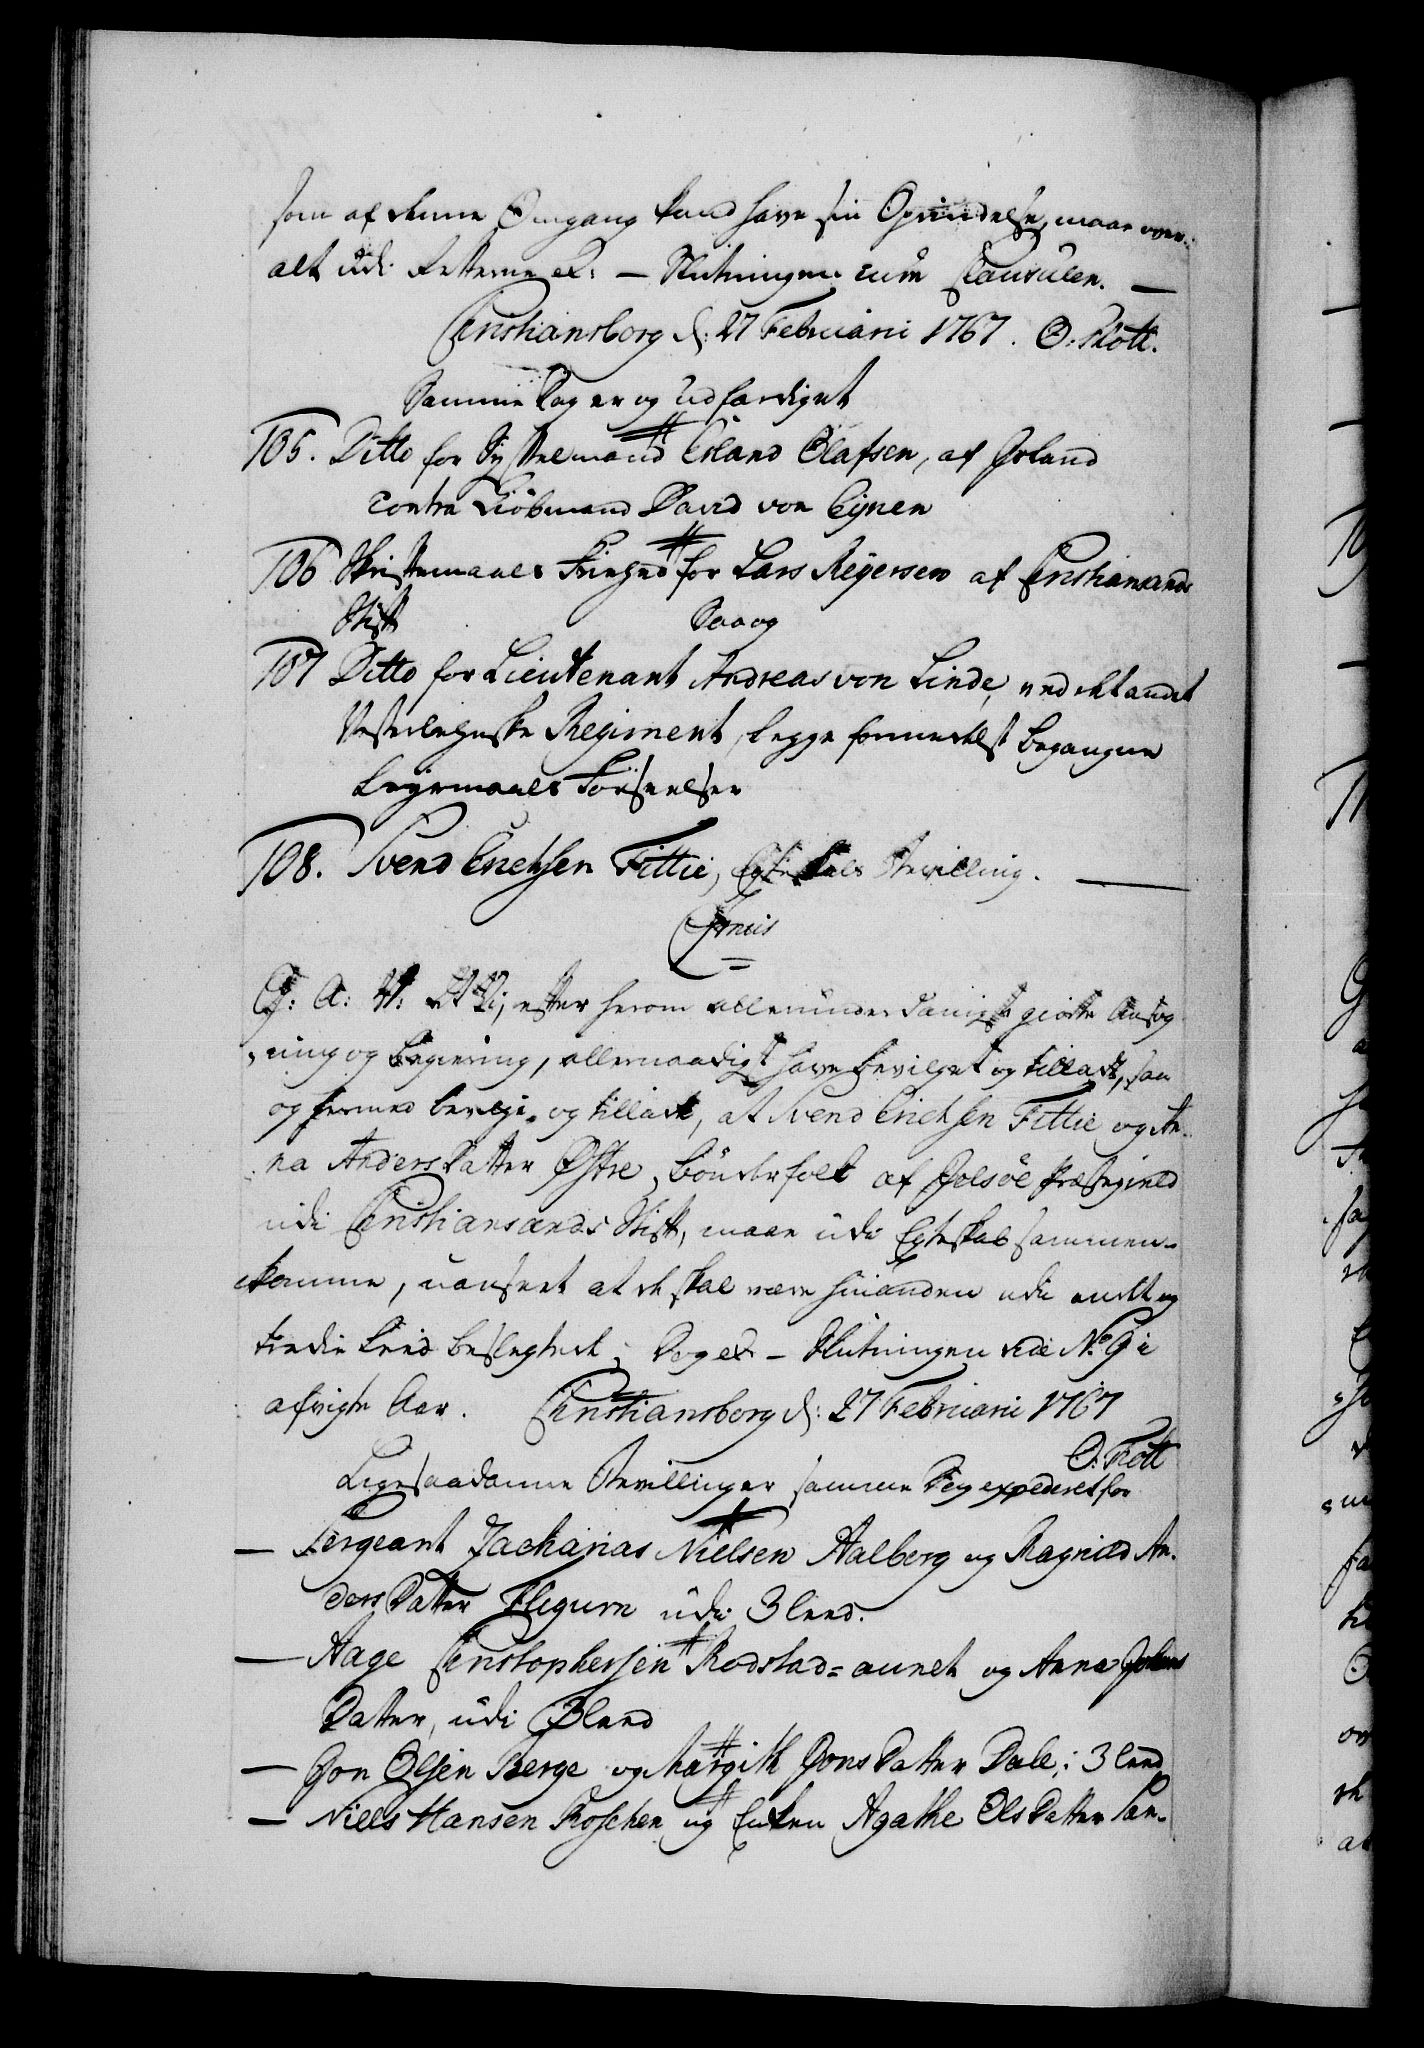 som af denne Omgang kand have sin Oprindelse, maae over¬
alt udi Retterne etc: — Slutningen cum Clausulen. —
Christiansborg d: 27 Februarii 1767. O. Thott.
Samme Dag er og udfærdiget
105. Ditto for Sysselmand Erland Olafsen, af Island
contra Kiøbmand David von Eynen
106 Skriftemaals Frihed for Lars Reyersen af Christiansands
Stift Saa og
107 Ditto for Lieutenant Andreas von Linde, ved det andet
Vesterlehnske Regiment, begge formedelst begangne
Leyermaals Forseelser
108. Svend Erichsen Fittie, Egteskabs Bevilling. —
Gratis
G: A: V: At Vi, efter herom allerunderdanigst giorte Ansøg¬
ning og Begiering, allernaadigst have bevilget og tilladt, saa
og hermed bevilge og tillade, at Svend Erichsen Fittie og An¬
na Anders Datter Østre, Bønderfolk af Holsøe Præstegield
udi Christiansands Stift, maae udi Egteskab sammen¬
komme, uanseet at de skal være hinanden udi andet og
tredie Leed beslegtede; Dog etc — Slutningen vide No 9 i
afvigte Aar. Christiansborg d: 27 Februarii 1767
O. Thott
Ligesaadanne Bevillinger samme Dag expederet for
— Sergeant Zacharias Nielsen Aalborg og Ragnild An¬
ders Datter Flegum udi 3 leed.
— Aage Christophersen Rodstad=aunet og Anna Johans
Datter, udi 3 leed
— Jon Olsen Berge og Margith Jons Datter Dale, i 3 leed
— Niels Hansen Roschen og Enken Agathe Ols Datter San¬